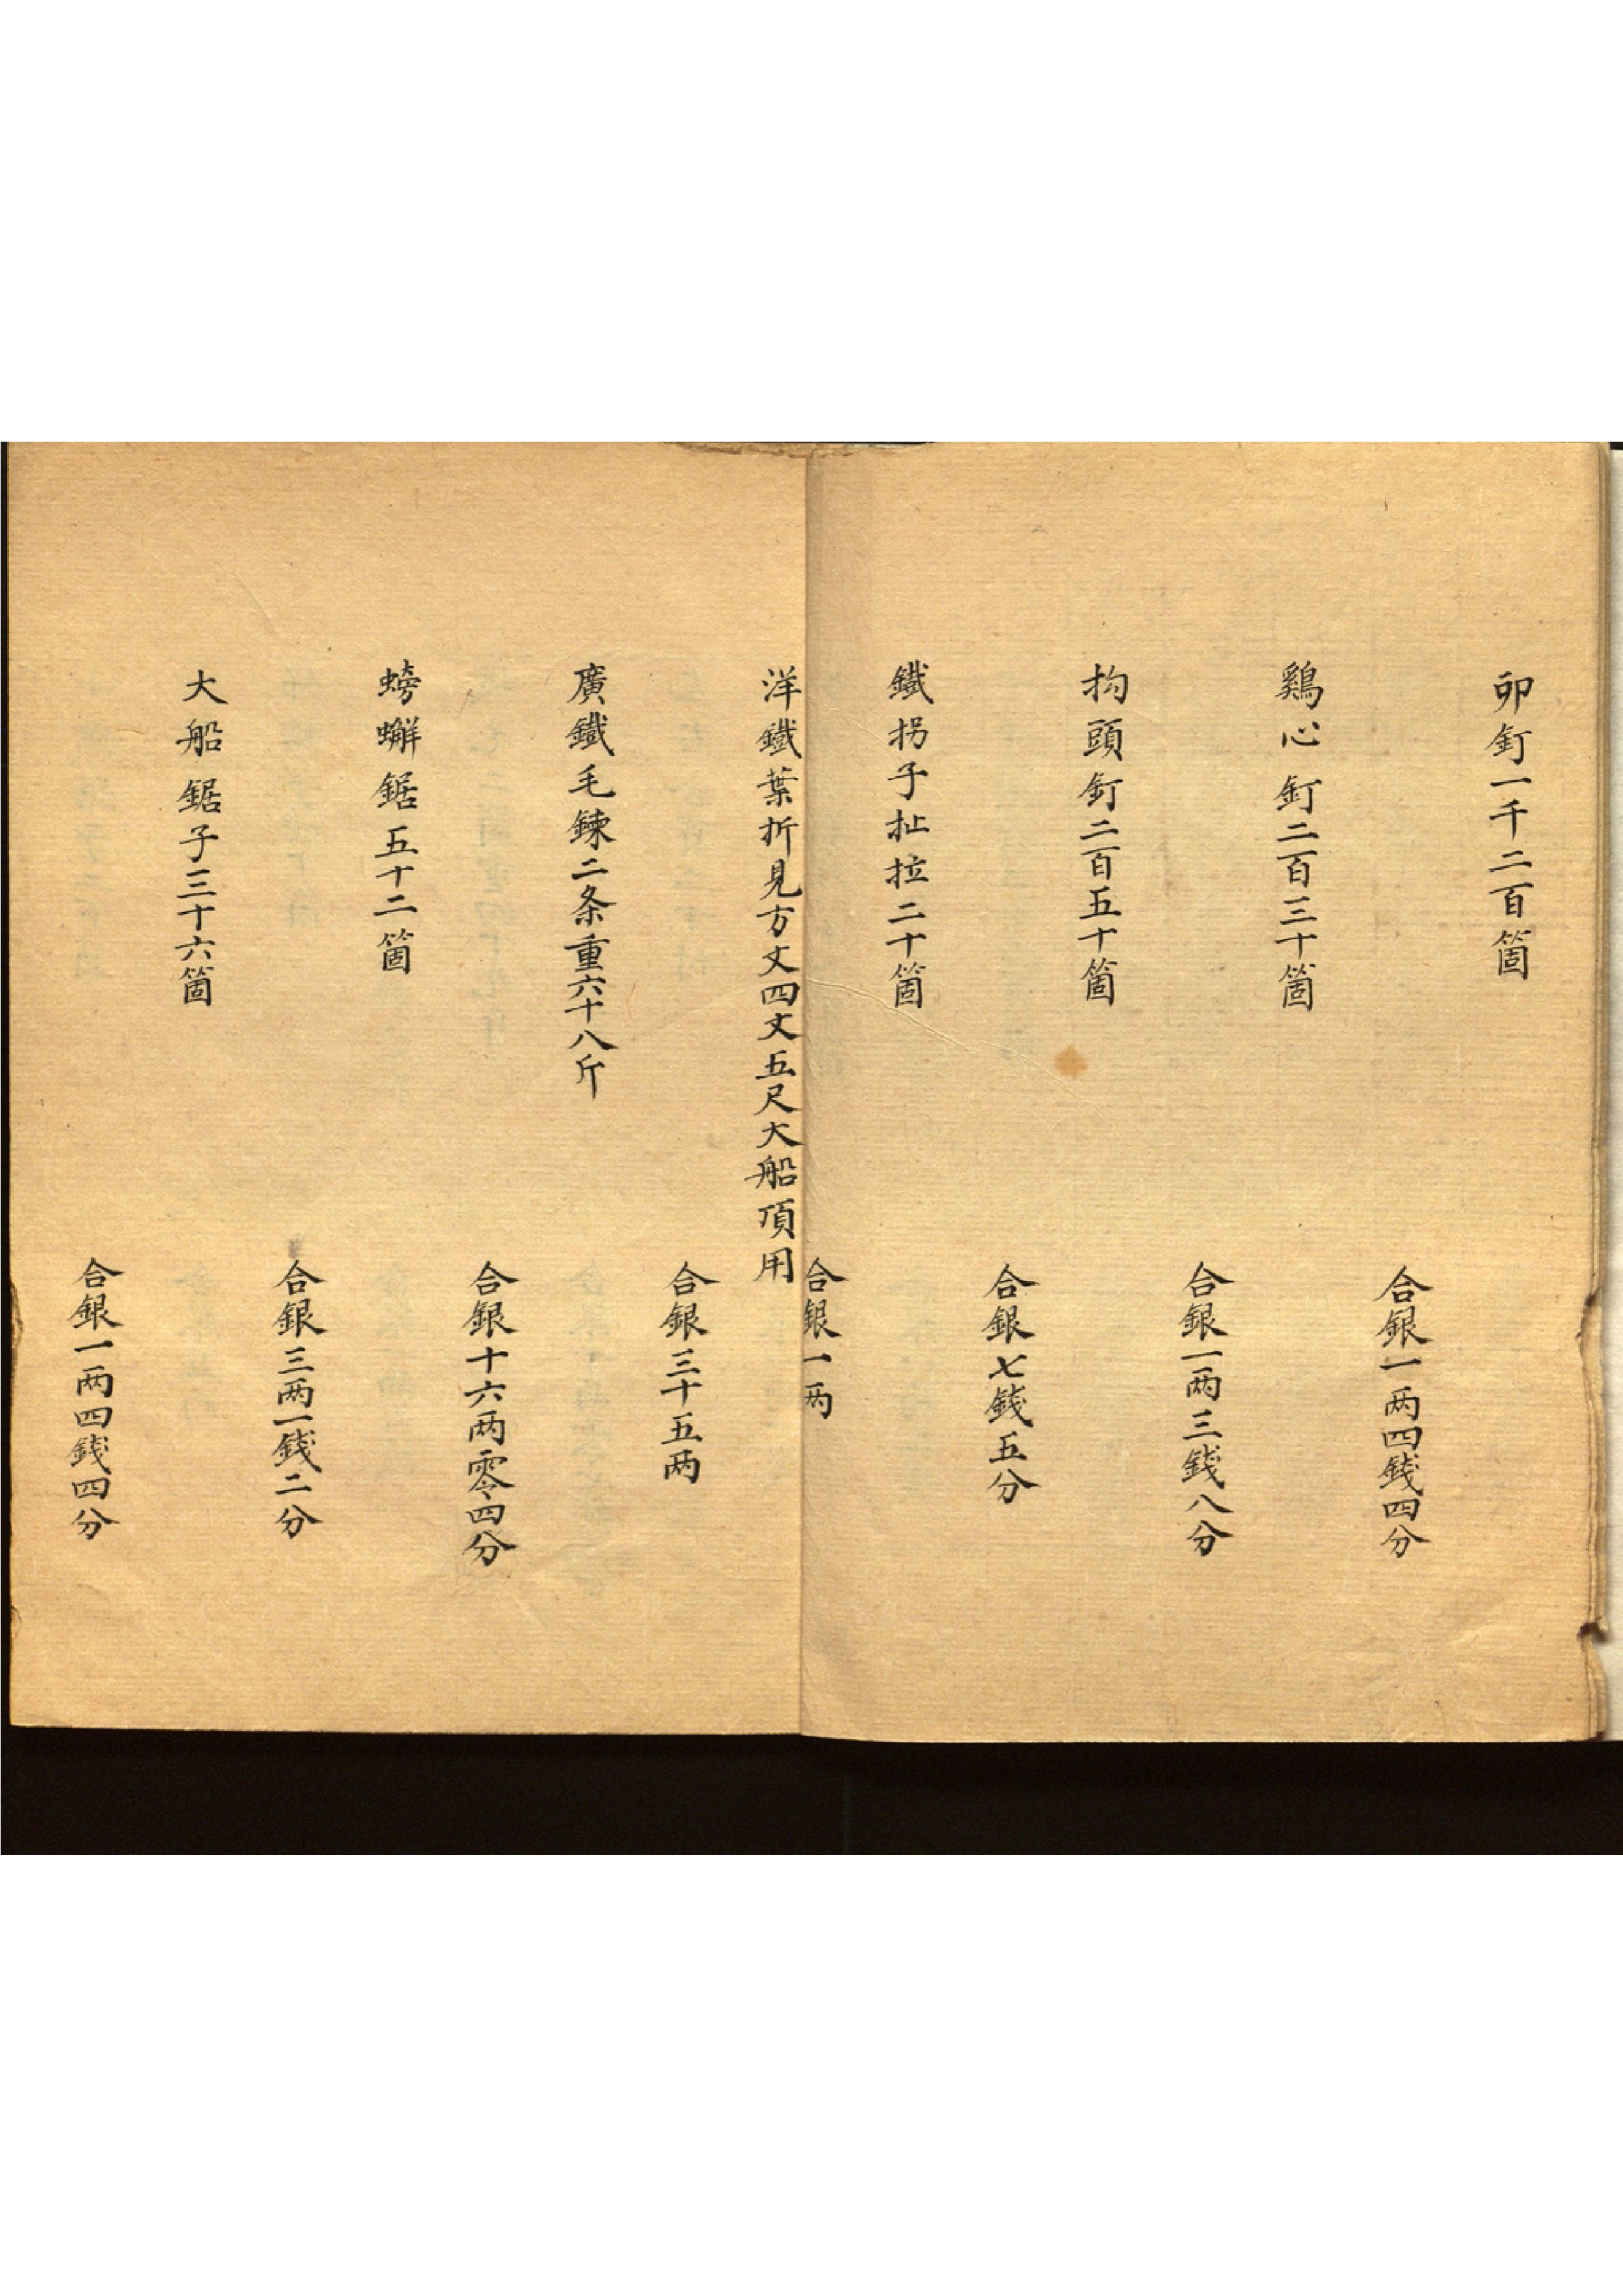 卯釘一千二百箇
合銀一两四錢四分
鷄心釘二百三十箇
合銀一两三錢八分
抅頭釘二百五十箇
合銀七錢五分
鐵拐子扯拉二十箇
合銀一两
洋鐵葉折見方丈四丈五尺大船頂用
合銀三十五两
廣鐵毛鍊二条重六十八斤
合銀十六两零四分
螃蠏鋸五十二箇
合銀三两一錢二分
大船鋸子三十六箇
合銀一两四錢四分